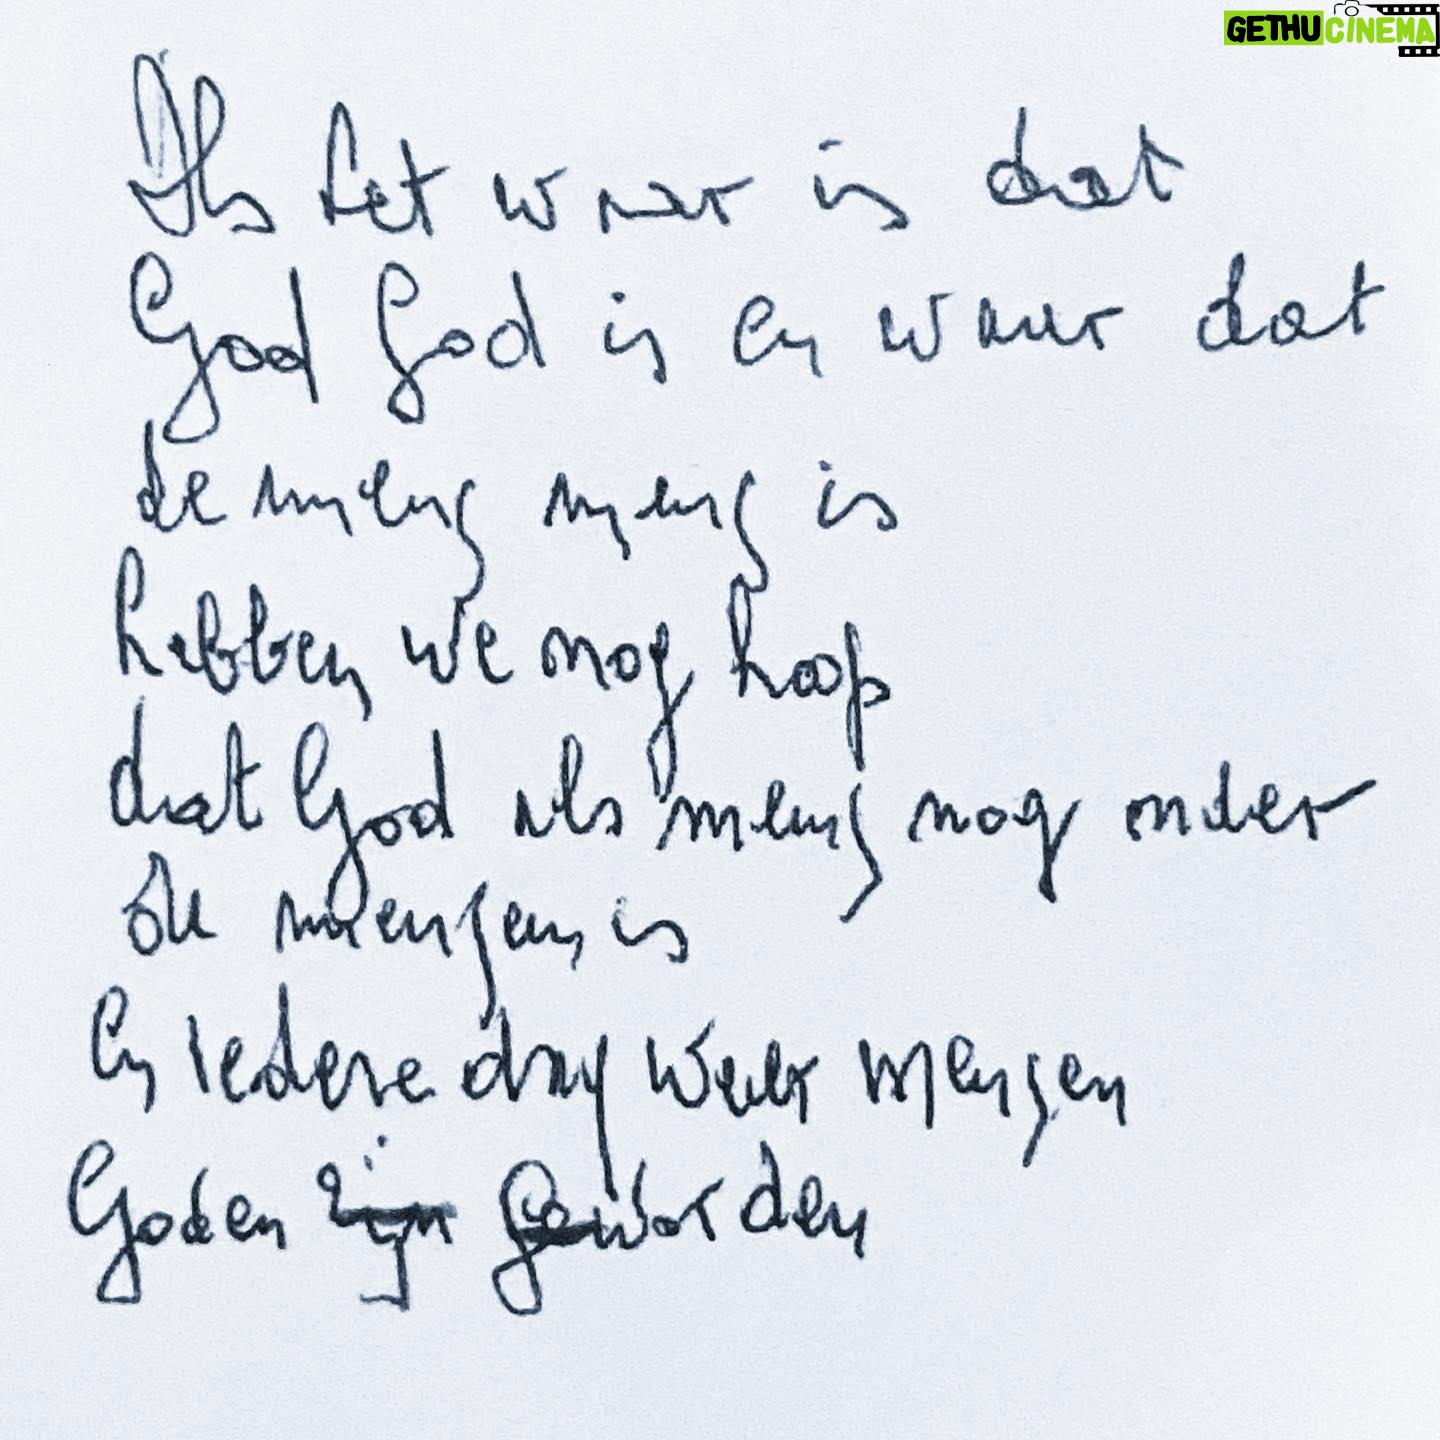 GETHUCINEMA
Als het waar is dat
God God is en waar dat
de mens mens is
hebben we nog hoop
dat God als mens nog onder
de mensen is
En iedere dag weer mensen
Goden zijn geworden